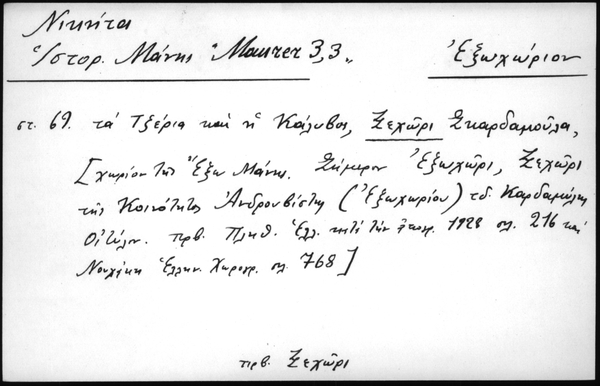 Νικήτα
Ἱστορ. Μάνης "Maurer 3,3" Ἐξωχώριον
στ. 69. τὰ Τζέρια καὶ ἡ Κάλυβες, Ξεχῶρι Σκαρδαμοῦλα,
[χωρίον τῆς Ἔξω Μάνης. Σήμερον Ἐξωχῶρι, Ξεχῶρι
τῆς Κοινότητος Ἀνδρουβίστης (Ἐξωχωρίου) τ. δ. Καρδαμύλης
Οἰτύλου. πρβ. Πληθ. Ἑλλ. κατὰ τὴν ἀπογρ. 1928 σελ. 216 καὶ
Νουχάκη Ἑλλην. Χωρογρ. σελ. 768]
πρβ. Ξεχῶρι